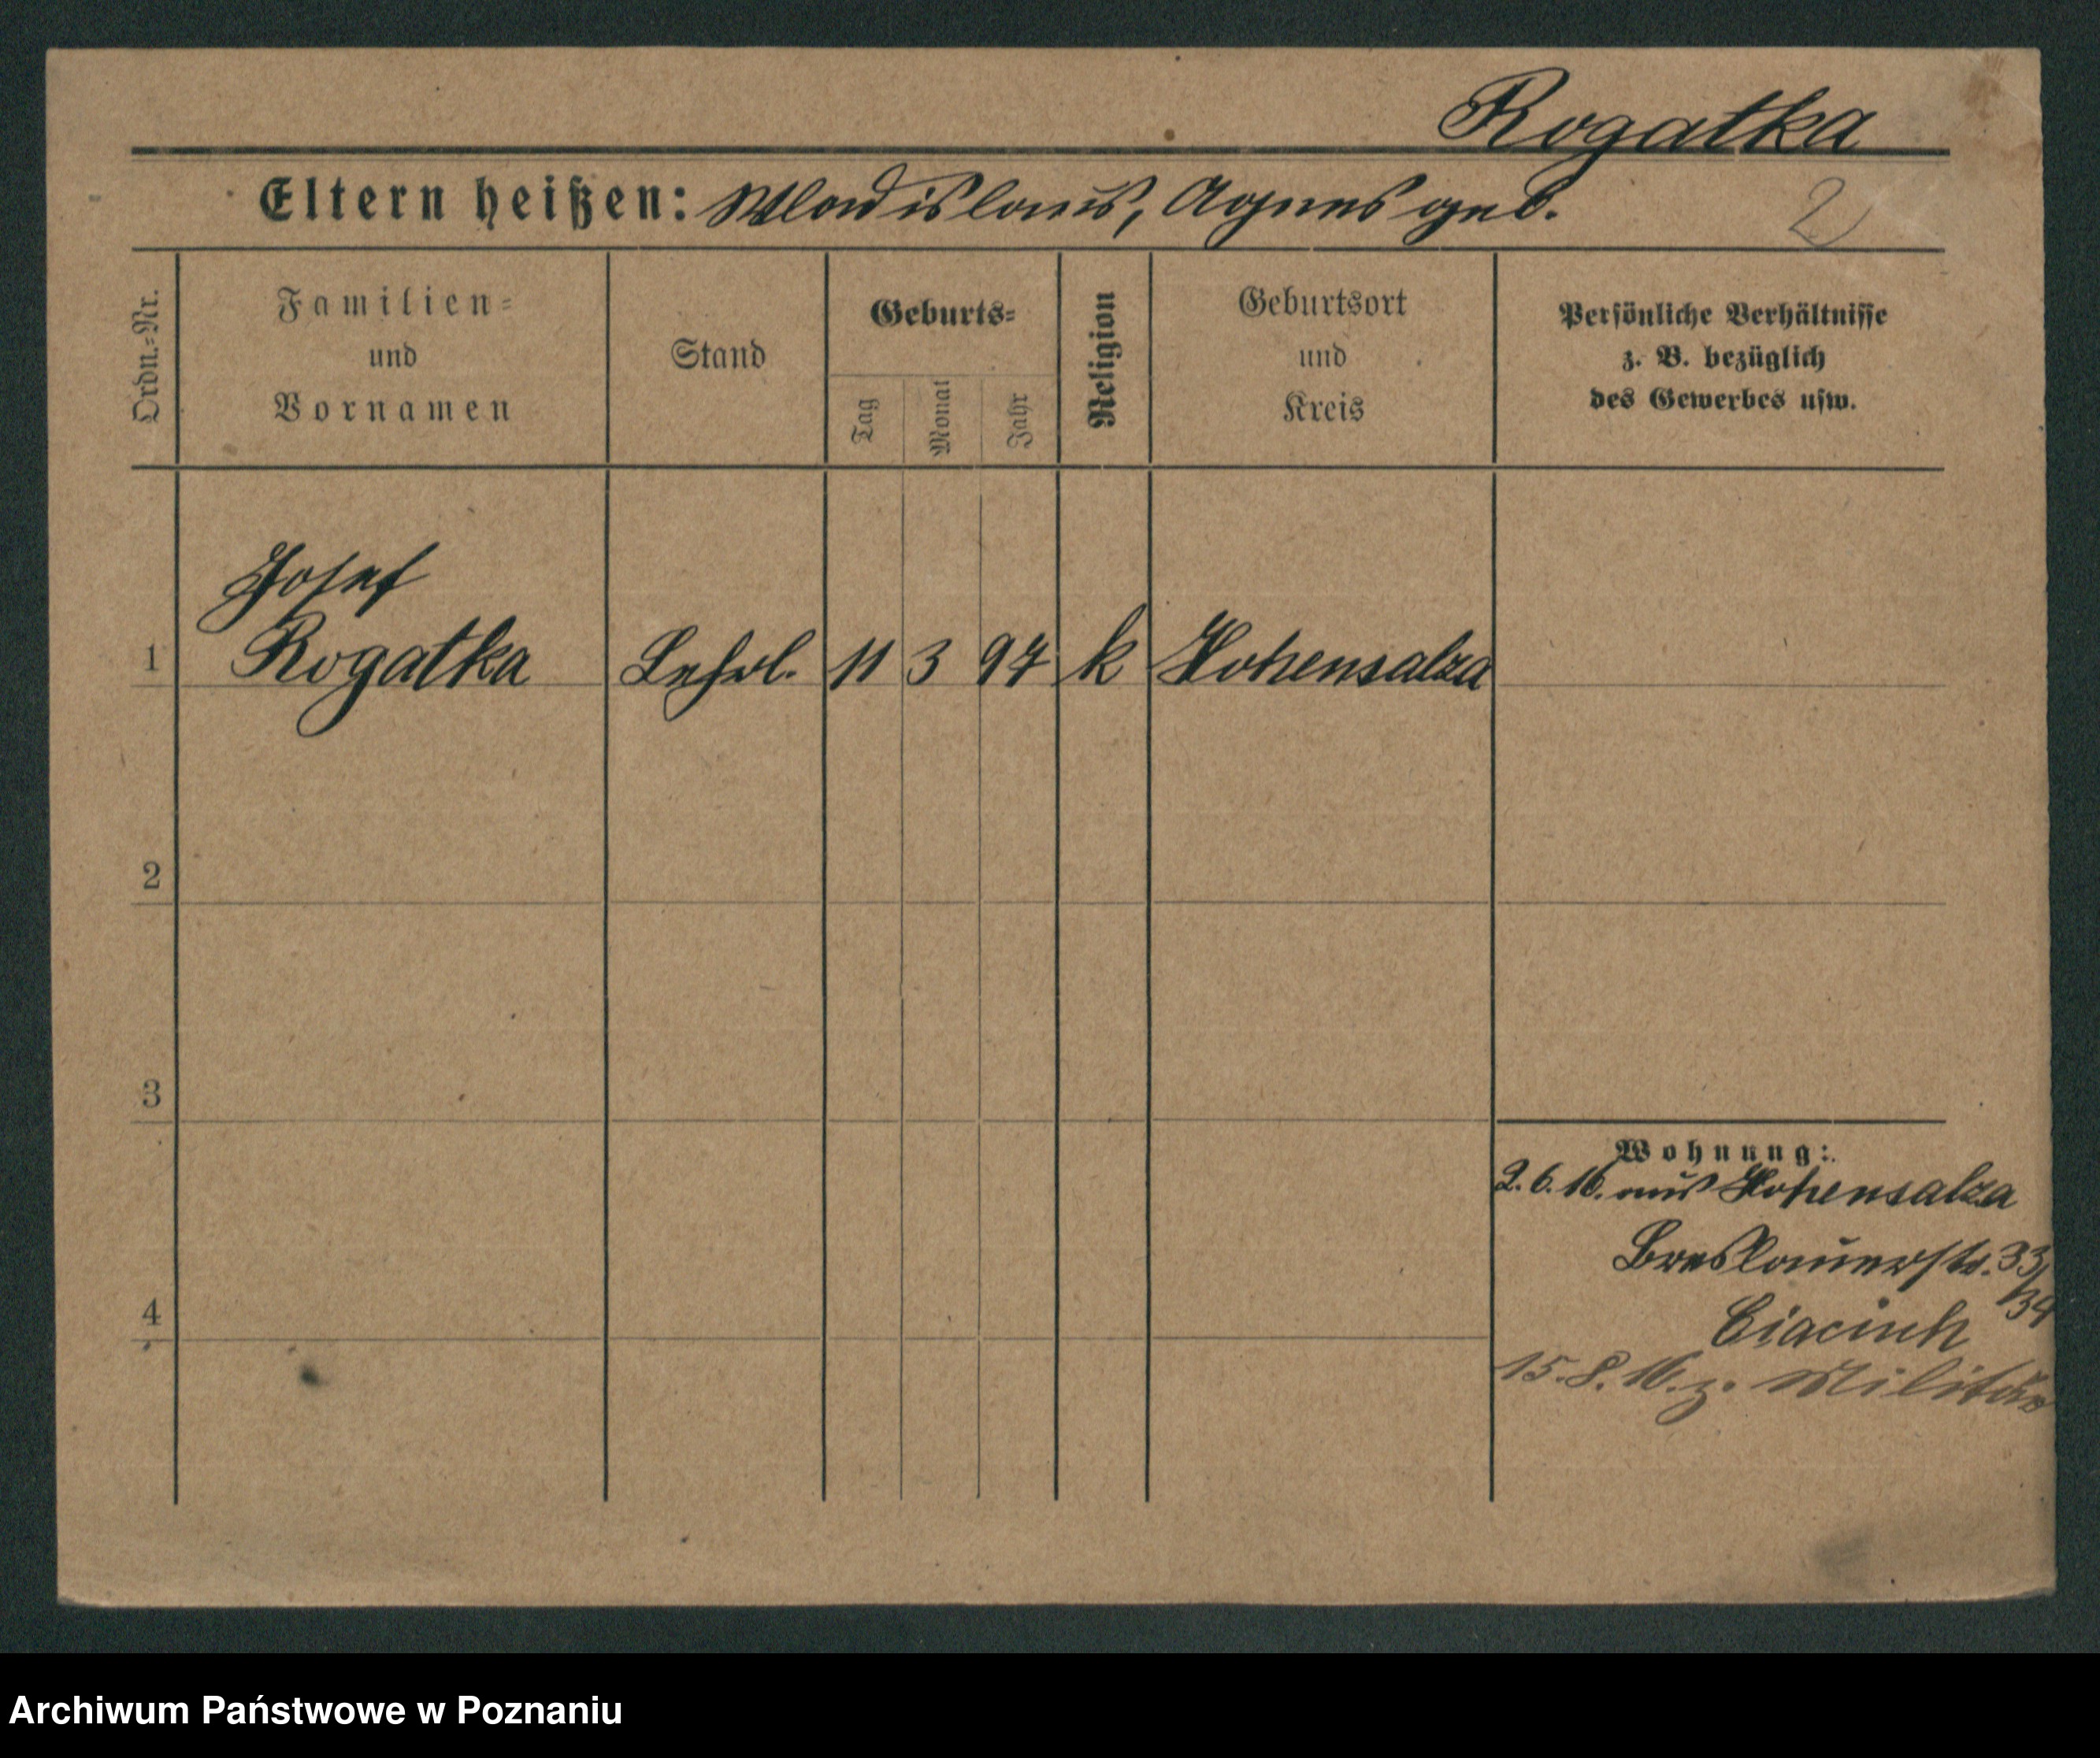 Rogatka
Eltern heißen: Wladislaus, Agnes geb.
2
Ordn.-Nr.
Familien-
und
Vornamen
Stand
Geburts-
Tag
Monat
Jahr
Religion
Geburtsort
und
Kreis
Persönliche Verhältnisse
z. B. bezüglich
des Gewerbes usw.
Josef
1 Rogatka Lehrl. 11 3 97 k Hohensalza
2
3
4
Wohnung:
2.6.16. aus Hohensalza
Breslauerstr. 33/34
Ciaciuch
15.8.16. z. Militär
Archiwum Państwowe w Poznaniu